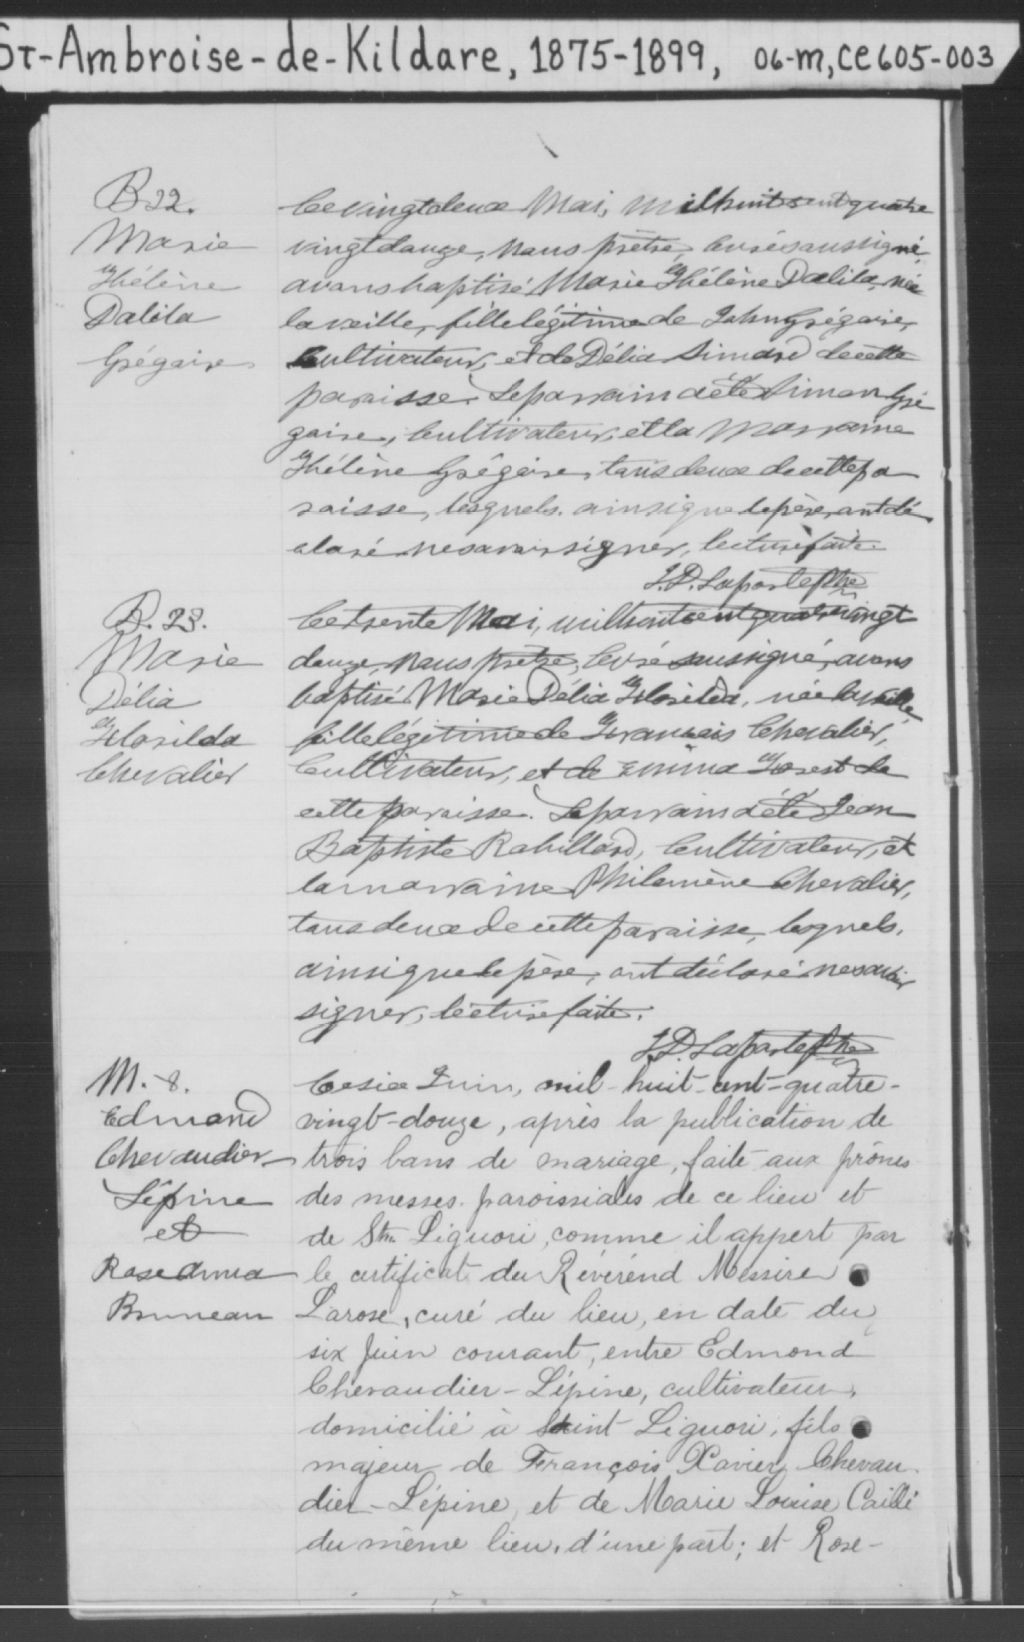 St-Ambroise-de-Kildare, 1875-1899, 06-M, CE605-003
B 22.
Marie
Hélène
Dalila
Grégoire
Ce vingt deux Mai, mil huit cent quatre
vingt douze, nous prêtre, Curé soussigné,
avons baptisé Marie Hélène Dalila, née
la veille, fille légitime de John Grégoire,
Cultivateur, et de Délia Simard de cette
paroisse. Le parrain a été Simon Gré
goire, Cultivateur, et la Marraine
Hélène Grégoire, tous deux de cette pa
roisse, lesquels, ainsi que le père, ont dé
claré ne savoir signer, lecture faite.
J.D. Laporte Ptre
B. 23.
Marie
Délia
Florilda
Chevalier
Ce trente Mai, mil huit cent quatre vingt
douze, nous prêtre, Curé soussigné, avons
baptisé Marie Délia Florilda, née la veille,
fille légitime de Francois Chevalier,
Cultivateur, et de Emma Forest de
cette paroisse. Le parrain a été Jean
Baptiste Robillard, Cultivateur, et
la marraine Philomène Chevalier,
tous deux de cette paroisse, lesquels,
ainsi que le père, ont déclaré ne savoir
signer, lecture faite.
J.D. Laporte Ptre
M. 8.
Edmond
Chevaudier
Lépine
et
Rose Anna
Bruneau
Ce six Juin, mil-huit-cent-quatre-
vingt-douze, après la publication de
trois bans de mariage, faite aux prônes
des messes paroissiales de ce lieu et
de St. Liguori, comme il appert par
le certificat du Révérend Messire
Larose, curé du lieu, en date du
six juin courant, entre Edmond
Chevaudier-Lépine, cultivateur,
domicilié à Saint Liguori, fils
majeur de François Xavier Chevau
dier-Lépine, et de Marie Louise Caillé
du même lieu, d'une part; et Rose-